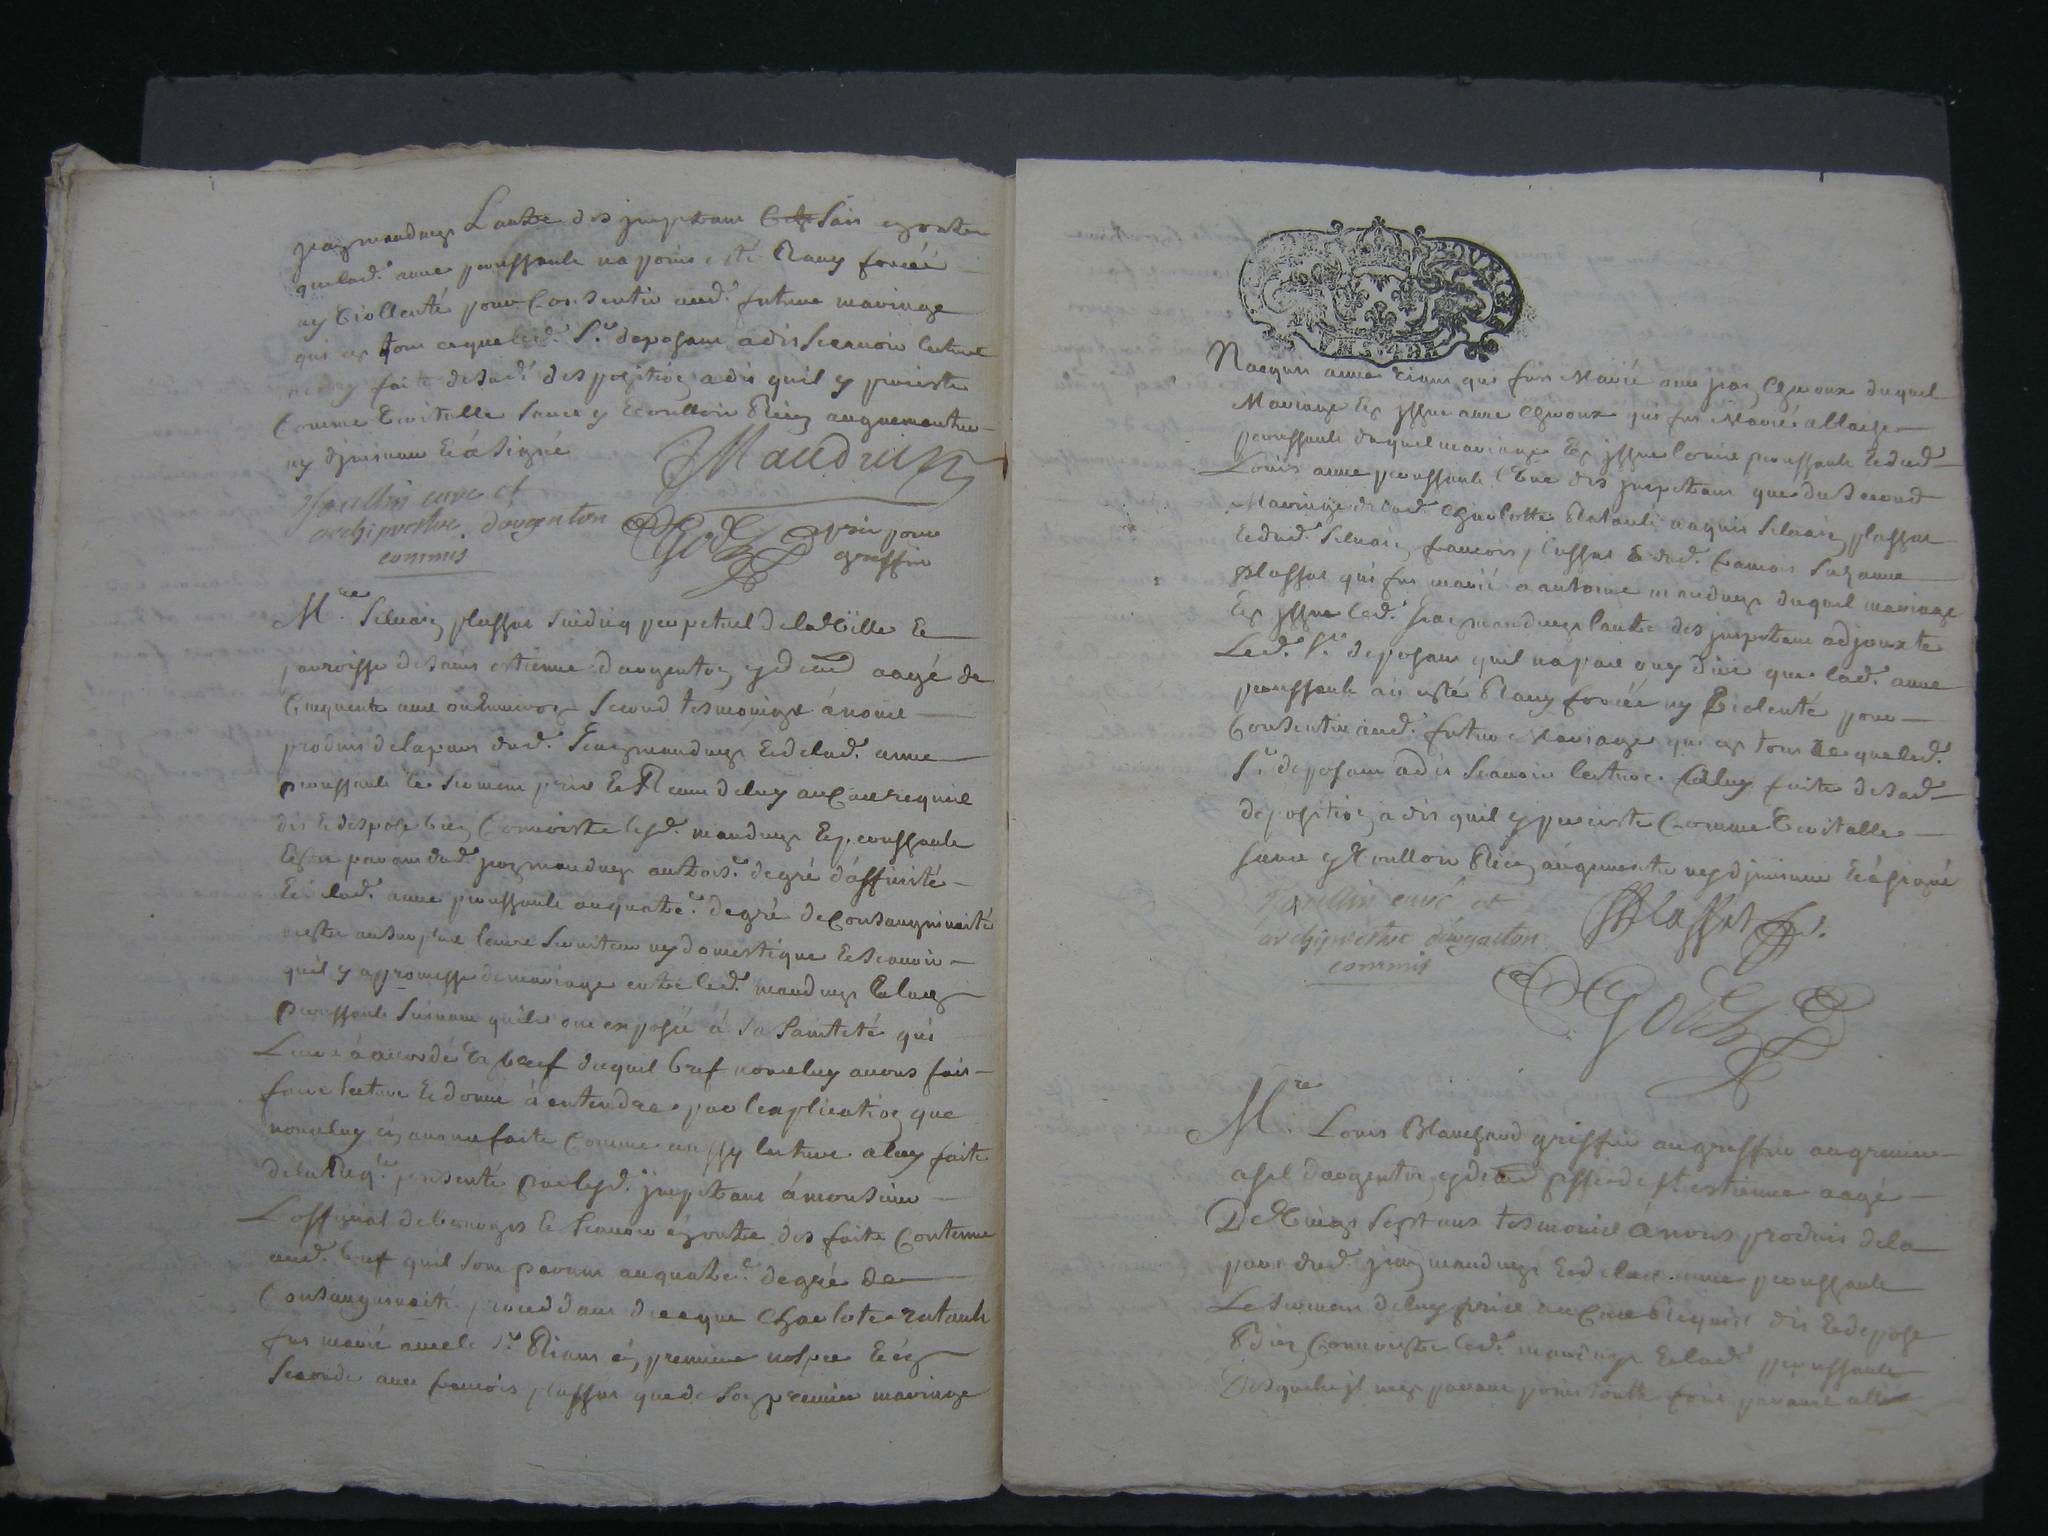 jean mauduys Lautre des impetrans Et sais ausortu
que lad. anne poussault na point esté Ravy forcée
ny viollenté pour Consentir aud. futur mariage
qui est tout ce que led. Sr. deposant a dit scavoir lecture
faite de sad. desposition a dit quil y persiste
Comme veritable sans y voulloir Rien augmenter
ny diminuer Et a signé
Mauduis
curé et
archiprestre d'argenton
commis
pris pour
greffier
Mre. Silvain plassat sindicq perpetuel de la ville Et
parroisse de saint estienne d'argenton y dem.t aagé de
Cinquante ans ou Environ second tesmoing à nous
produit de la part dud. Jean mauduys Et de lad. anne
poussault le serment pris Et Receu de luy au Cas requis
dit Et despose bien Connoistre lesd. mauduys Et poussault
Estre parant dud. jean mauduys au trois.e degré d'affinité
Et lad. anne poussault au quatr.e degré de Consanguinité
nestre au surplus leurs serviteur ny domestique Et scavoir
quil y a promesse de mariage entre led. mauduys Et lad.
poussault suivant quils ont exposé à sa sainteté qui
Leur a accordé le bref duquel bref nous luy avons fait
faire lecture Et donné à entendre par lexplication que
nous luy en avons faite Comme aussy lecture a luy faite
de la Req.te presenté par lesd. impetrans à monsieur
Lofficial de bourges Et scavoir outre des faits Contenus
aud. bref quil sont parans au quatr.e degré de
Consanguinité procedant de ce que Charlotte ratault
fut marié avec le Sr. Rians en premiere nospce Et en
seconde avec francois plassat que de son premier mariage
Naquit anne Rians qui fut Marié avec jean Chenoux duquel
Mariage Est issue anne Chenoux qui fut Marié a blaise
poussault duquel mariage Est issue louis poussault Et dud.
Louis anne poussault l'une des impetrans que du second
Mariage de lad. Charlotte Ratault naquit Silvain plassat
Et dud. Silvain francois plassat Et dud. francois Suzanne
plassat qui fut marié a antoine mauduys duquel mariage
Est issue led. jean mauduys lautre des impetrans adjouxte
Led. Sr. deposant quil na pas ouy dire que lad. anne
poussault ait esté Ravy forcée ny violenté pour
Consentir aud. futur Mariage qui est tout ce que led.
Sr. deposant a dit scavoir lecture a luy faite de sad.
deposition a dit quil y persiste Comme veritable
sans y voulloir Rien augmenter ny diminuer Et a signé
curé et
archiprestre d'argenton
commis
Plassat
Mre. Louis Blanchard greffier au grenier
a sel d'argenton y dem.t psse de st. estienne aagé
De Vingt Sept ans tesmoins à nous produit de la
part dud. jean mauduys Et de lad. anne poussault
Le serment de luy pris au Cas Requis dit Et depose
Bien Connoistre led. mauduys Et lad. poussault
Desquels il nest parant